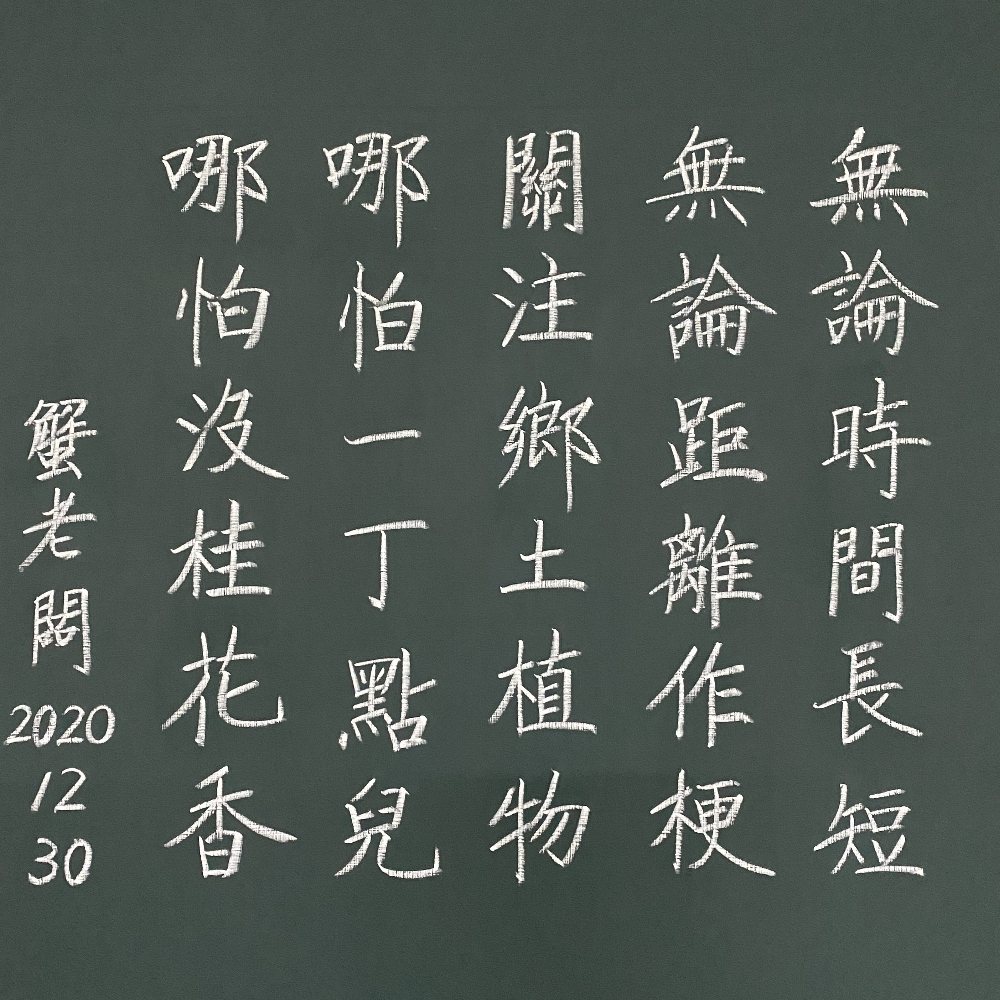 無論時間長短
無論距離作梗
關注鄉土植物
哪怕一丁點兒
哪怕沒桂花香
蟹老闆
2020
12
30